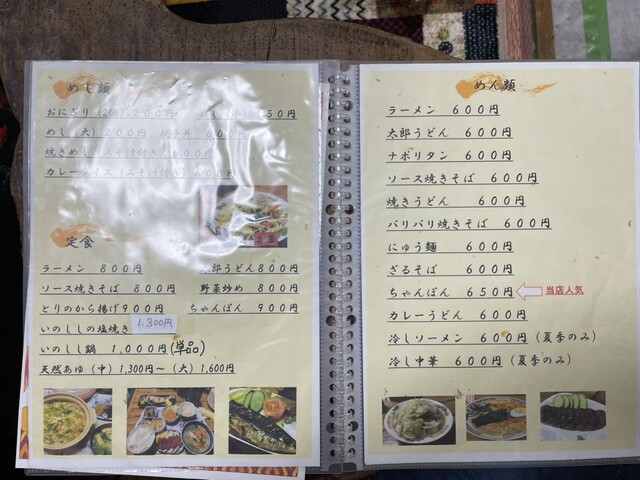 めし類
おにぎり（2個）200円 めし（小）150円
めし（大）200円 玉子丼 600円
焼きめし（みそ汁付き）600円
カレーライス（みそ汁付き）600円
定食
ラーメン 800円 太郎うどん 800円
ソース焼きそば 800円 野菜炒め 800円
とりのから揚げ 900円 ちゃんぽん 900円
いのししの塩焼き 1,300円
いのしし鍋 1,000円(単品)
天然あゆ（中）1,300円～（大）1,600円
めん類
ラーメン 600円
太郎うどん 600円
ナポリタン 600円
ソース焼きそば 600円
焼きうどん 600円
パリパリ焼きそば 600円
にゅう麺 600円
ざるそば 600円
ちゃんぽん 650円 当店人気
カレーうどん 600円
冷しソーメン 600円（夏季のみ）
冷し中華 600円（夏季のみ）